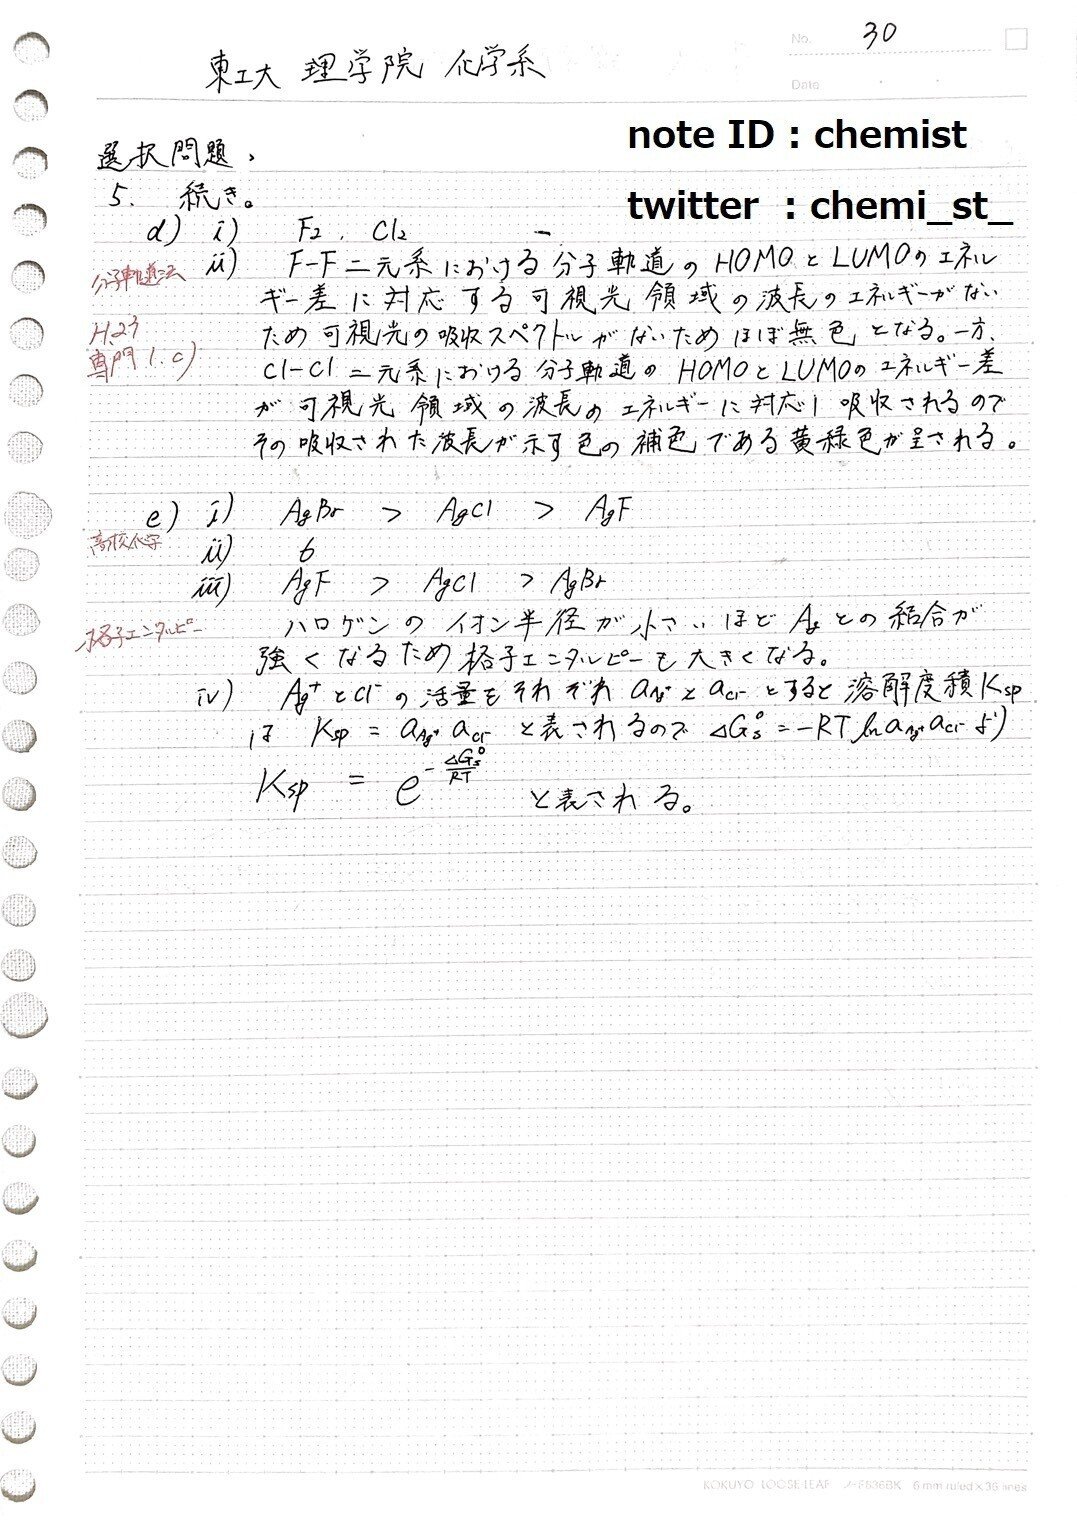 No. 30
東工大 理学院 化学系
Date
note ID : chemist
twitter : chemi_st_
選択問題、
5. 続き。
d) i) F₂, Cl₂
分子軌道法
ii) F-F 二元系における分子軌道のHOMOとLUMOのエネル
ギー差に対応する可視光領域の波長のエネルギーがない
H23
専門 1. c)
ため可視光の吸収スペクトルがないためほぼ無色となる。一方、
Cl-Cl 二元系における分子軌道のHOMOとLUMOのエネルギー差
が可視光領域の波長のエネルギーに対応し吸収されるので
その吸収された波長が示す色の補色である黄緑色が呈される。
e) i) AgBr > AgCl > AgF
高校化学
ii) 6
iii) AgF > AgCl > AgBr
格子エンタルピー
ハロゲンのイオン半径が小さいほどAgとの結合が
強くなるため格子エンタルピーも大きくなる。
iv) Ag⁺とCl⁻の活量をそれぞれ a_Ag⁺ と a_Cl⁻ とすると溶解度積Ksp
は Ksp = a_Ag⁺ a_Cl⁻ と表されるので ΔGs° = -RT ln a_Ag⁺ a_Cl⁻ より
Ksp = e^(-ΔGs°/RT) と表される。
KOKUYO LOOSE-LEAF ノ-F836BK 6 mm ruled × 36 lines